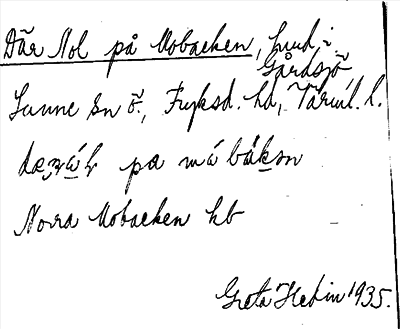 Där Nol på Mobacken, hmd i
Gårdsjö
Sunne sn ö., Fryksd. hd, Värml. l.
pa mɷ́ bákən
Norra Mobacken hb
Greta Hedin 1935.